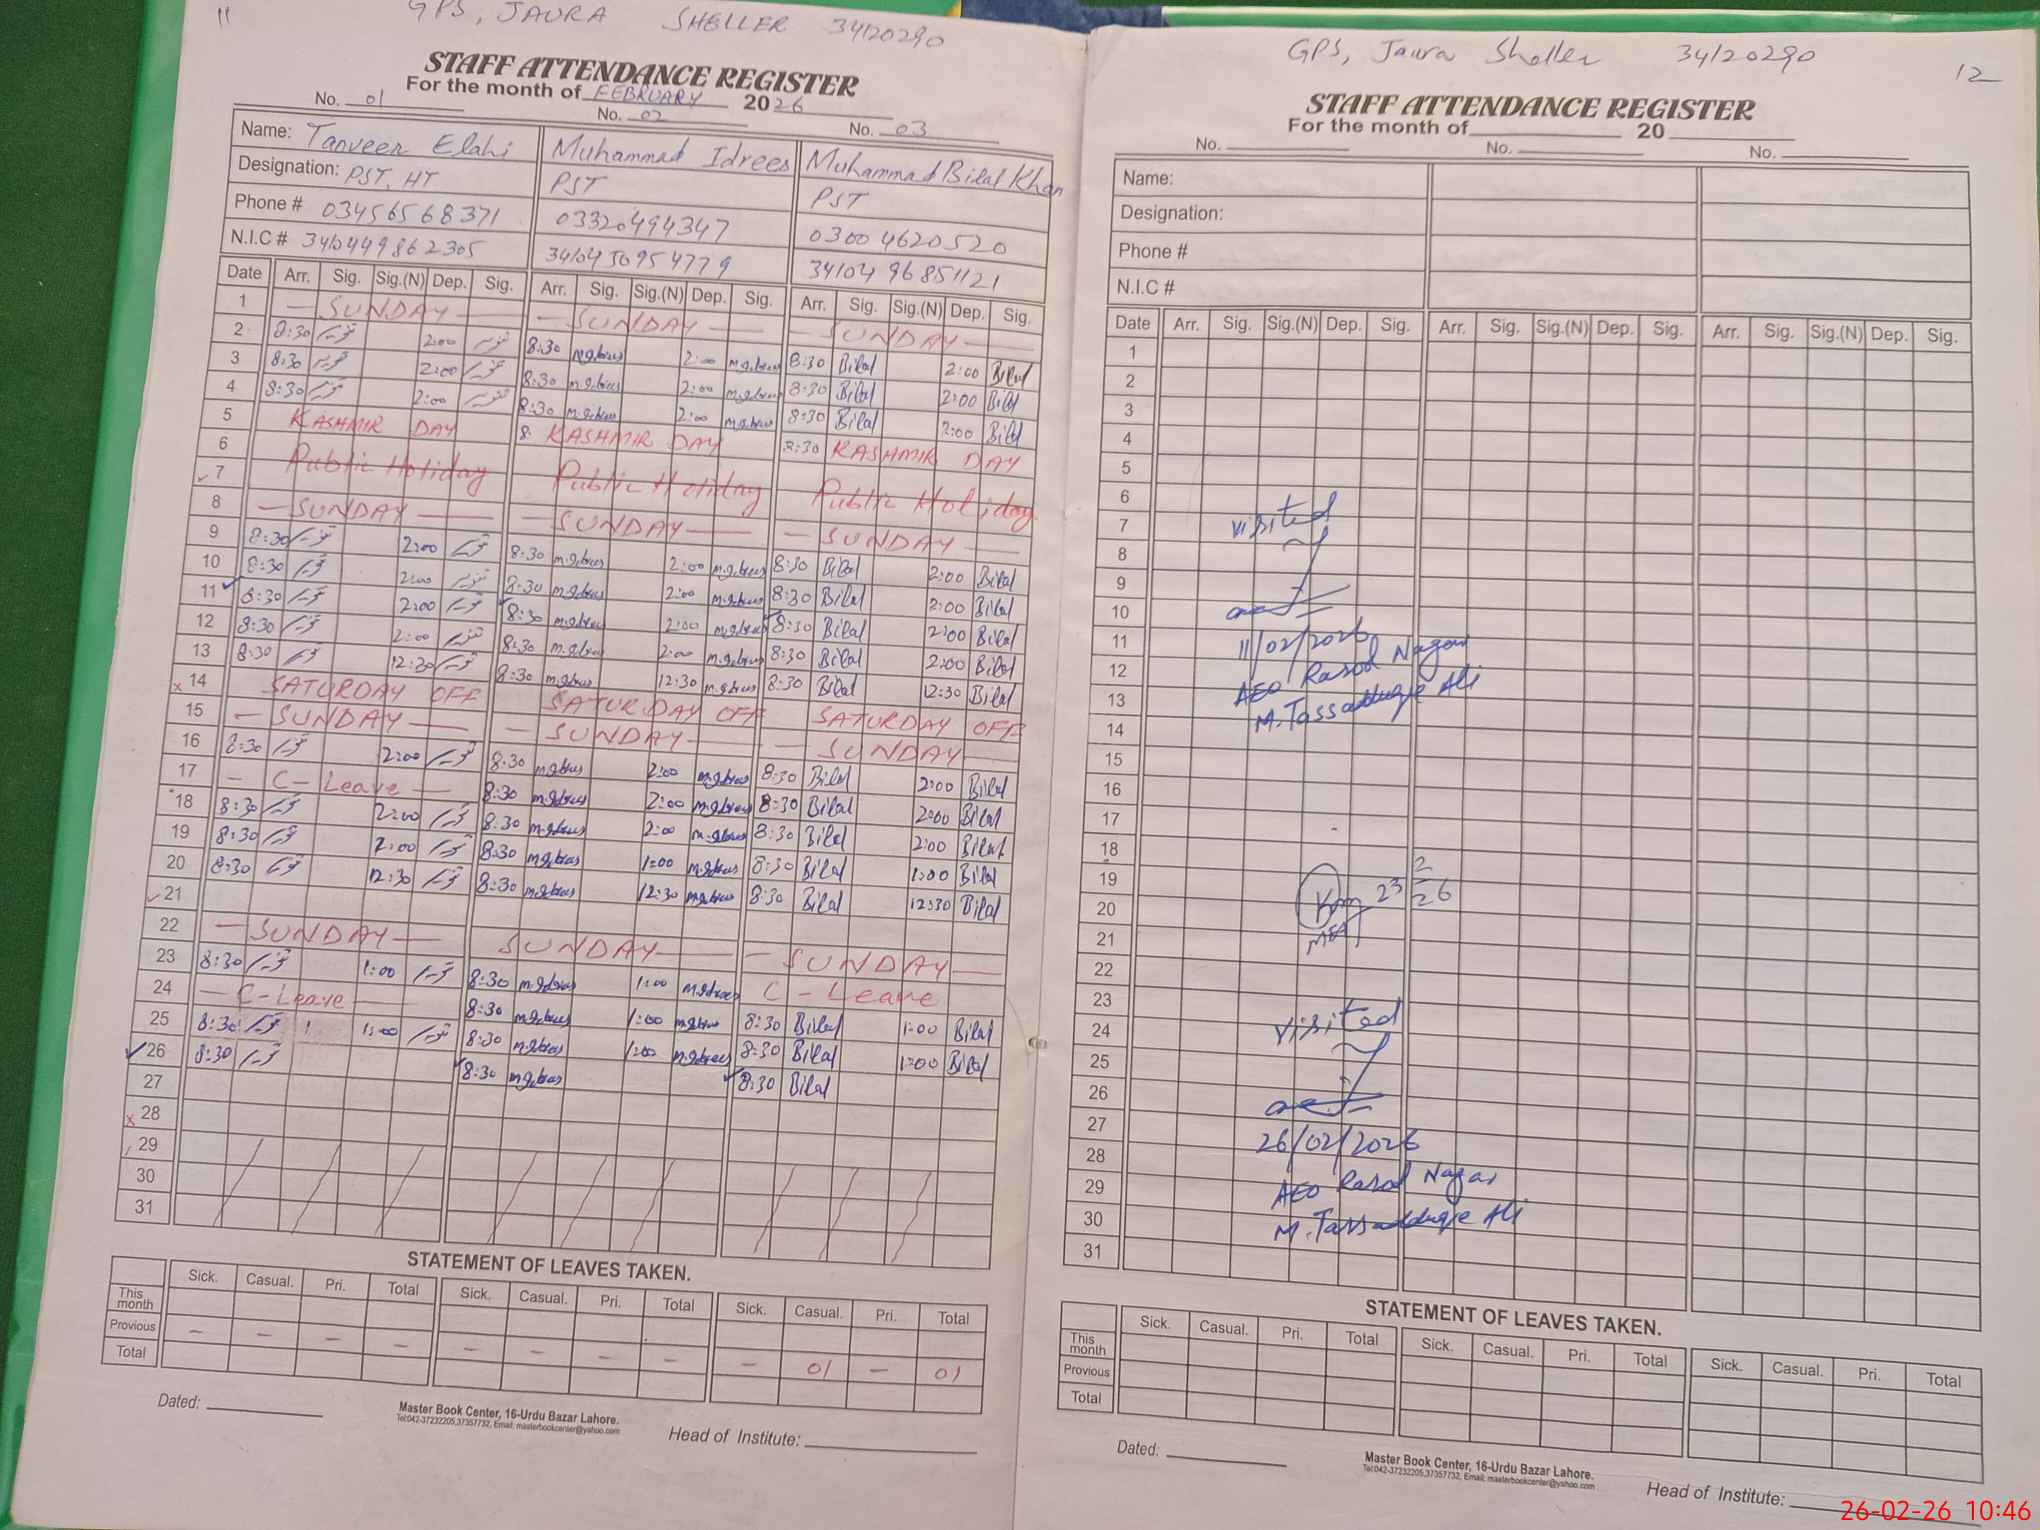 11
GPS, JAURA SHELLER 34120290
STAFF ATTENDANCE REGISTER
For the month of FEBRUARY 2026
No. 01 No. 02 No. 03
Name: Tanveer Elahi Muhammad Idrees Muhammad Bilal Khan
Designation: PST, HT PST PST
Phone # 03456568371 03320494347 03004620520
N.I.C # 3410449862305 3410450954779 3410496851121
Date Arr. Sig. Sig.(N) Dep. Sig. Arr. Sig. Sig.(N) Dep. Sig. Arr. Sig. Sig.(N) Dep. Sig.
1 — SUNDAY — — SUNDAY — — SUNDAY —
2 8:30 تنویر 2:00 تنویر 8:30 m.idrees 2:00 m.idrees 8:30 Bilal 2:00 Bilal
3 8:30 تنویر 2:00 تنویر 8:30 m.idrees 2:00 m.idrees 8:30 Bilal 2:00 Bilal
4 8:30 تنویر 2:00 تنویر 8:30 m.idrees 2:00 m.idrees 8:30 Bilal 2:00 Bilal
5 KASHMIR DAY 8: KASHMIR DAY 8:30 KASHMIR DAY
6 Public Holiday Public Holiday Public Holiday
7
8 — SUNDAY — — SUNDAY — — SUNDAY —
9 8:30 تنویر 2:00 تنویر 8:30 m.idrees 2:00 m.idrees 8:30 Bilal 2:00 Bilal
10 8:30 تنویر 2:00 تنویر 8:30 m.idrees 2:00 m.idrees 8:30 Bilal 2:00 Bilal
11 8:30 تنویر 2:00 تنویر 8:30 m.idrees 2:00 m.idrees 8:30 Bilal 2:00 Bilal
12 8:30 تنویر 2:00 تنویر 8:30 m.idrees 2:00 m.idrees 8:30 Bilal 2:00 Bilal
13 8:30 تنویر 12:30 تنویر 8:30 m.idrees 12:30 m.idrees 8:30 Bilal 12:30 Bilal
14 SATURDAY OFF SATURDAY OFF SATURDAY OFF
15 — SUNDAY — — SUNDAY — — SUNDAY —
16 8:30 تنویر 2:00 تنویر 8:30 m.idrees 2:00 m.idrees 8:30 Bilal 2:00 Bilal
17 — C-Leave — 8:30 m.idrees 2:00 m.idrees 8:30 Bilal 2:00 Bilal
18 8:30 تنویر 2:00 تنویر 8:30 m.idrees 2:00 m.idrees 8:30 Bilal 2:00 Bilal
19 8:30 تنویر 2:00 تنویر 8:30 m.idrees 1:00 m.idrees 8:30 Bilal 1:00 Bilal
20 8:30 تنویر 12:30 تنویر 8:30 m.idrees 12:30 m.idrees 8:30 Bilal 12:30 Bilal
21
22 — SUNDAY — SUNDAY — — SUNDAY —
23 8:30 تنویر 1:00 تنویر 8:30 m.idrees 1:00 m.idrees C - Leave
24 — C-Leave — 8:30 m.idrees 1:00 m.idrees 8:30 Bilal 1:00 Bilal
25 8:30 تنویر 1:00 تنویر 8:30 m.idrees 1:00 m.idrees 8:30 Bilal 1:00 Bilal
26 8:30 تنویر 8:30 m.idrees 8:30 Bilal
27
28
29
30
31
STATEMENT OF LEAVES TAKEN.
Sick. Casual. Pri. Total Sick. Casual. Pri. Total Sick. Casual. Pri. Total
This month
Previous — — — — — — — — — 01 — 01
Total
Dated:
Master Book Center, 16-Urdu Bazar Lahore.
Tel:042-37232205,37357732, Email: masterbookcenter@yahoo.com
Head of Institute:
GPS, Jaura Sheller 34120290
12
STAFF ATTENDANCE REGISTER
For the month of 20
No. No. No.
Name:
Designation:
Phone #
N.I.C #
Date Arr. Sig. Sig.(N) Dep. Sig. Arr. Sig. Sig.(N) Dep. Sig. Arr. Sig. Sig.(N) Dep. Sig.
1
2
3
4
5
6
7 visited
8
9
10
11 11/02/2026
12 AEO Rasool Nagar
13 M. Tassadduqe Ali
14
15
16
17
18
19 23 2 26
20
21 MEA
22
23
24 visited
25
26
27 26/02/2026
28
29 AEO Rasool Nagar
30 M. Tassadduqe Ali
31
STATEMENT OF LEAVES TAKEN.
Sick. Casual. Pri. Total Sick. Casual. Pri. Total Sick. Casual. Pri. Total
This month
Previous
Total
Dated:
Master Book Center, 16-Urdu Bazar Lahore.
Tel:042-37232205,37357732, Email: masterbookcenter@yahoo.com
Head of Institute:
26-02-26 10:46